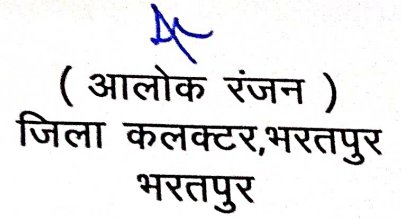 ( आलोक रंजन )
जिला कलक्टर,भरतपुर
भरतपुर